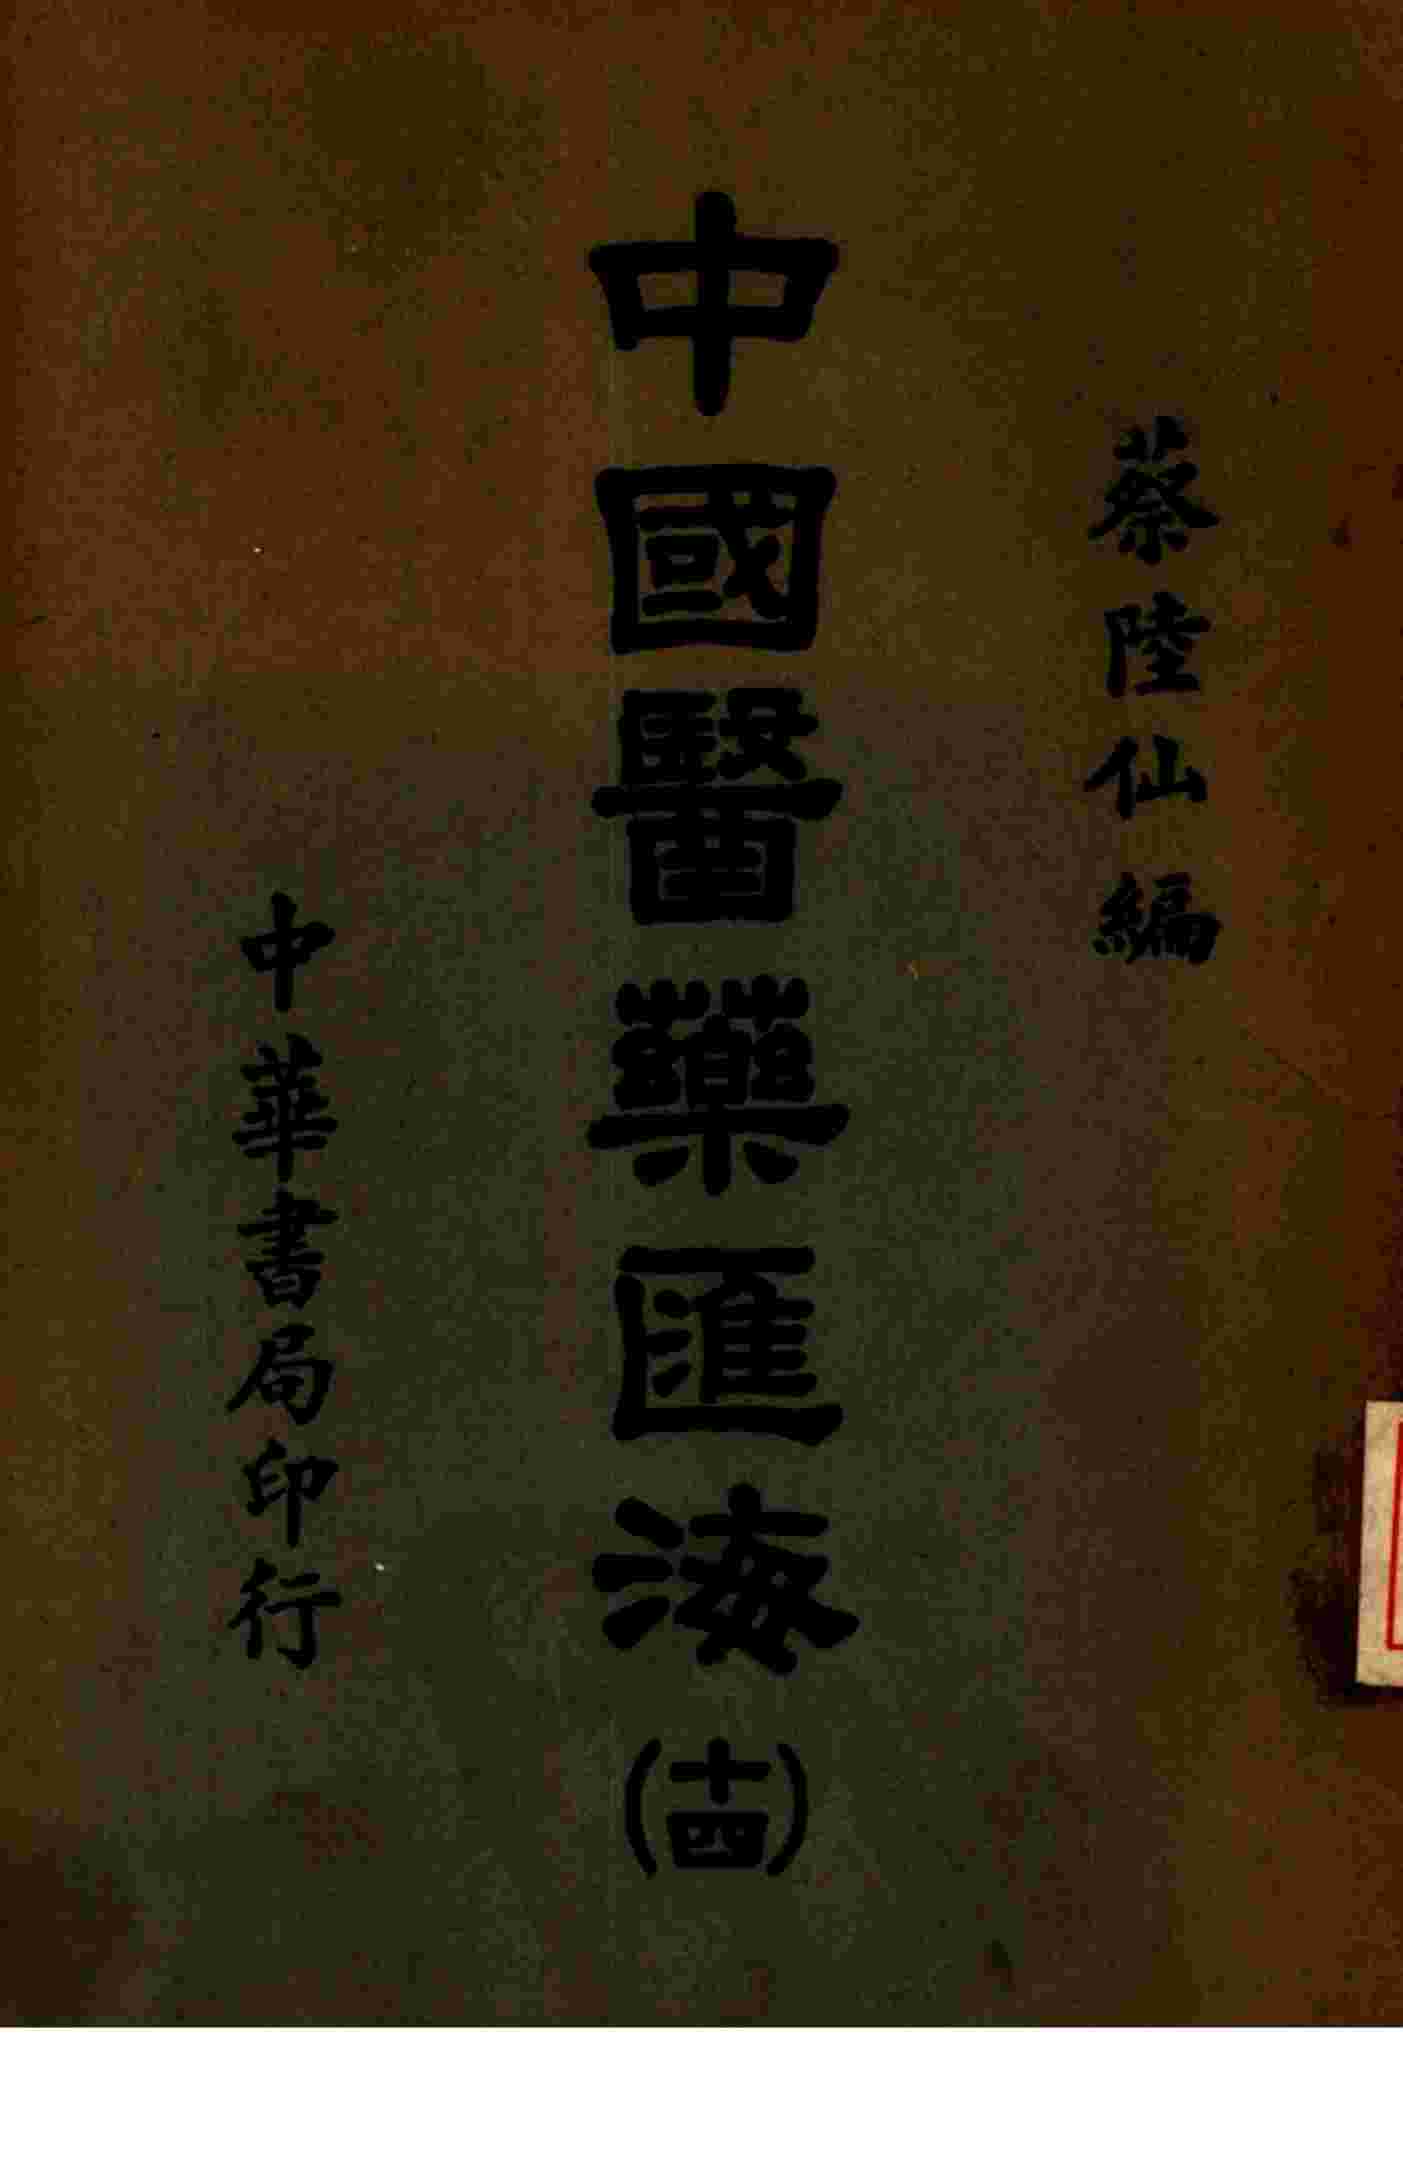 蔡陸仙編
中國醫藥匯海(十四)
中華書局印行